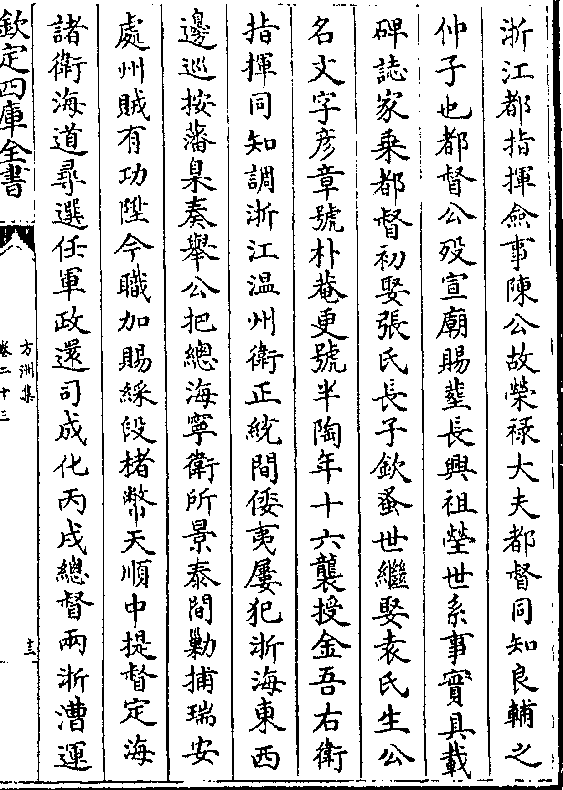 浙江都指揮僉事陳公故榮禄大夫都督同知良輔之
仲子也都督公殁宣廟賜塟長興祖塋世系事實具載
碑誌家乗都督初娶張氏長子欽蚤世繼娶袁氏生公
名文字彦章號朴菴更號半陶年十六襲授金吾右衛
指揮同知調浙江温州衛正統間倭夷屢犯浙海東西
邊巡按藩臬奏舉公把總海寧衛所景泰間勦捕瑞安
處州賊有功陞今職加賜綵段楮幣天順中提督定海
諸衛海道尋選任軍政還司成化丙戌總督兩浙漕運
欽定四庫全書
方洲集
卷二十三